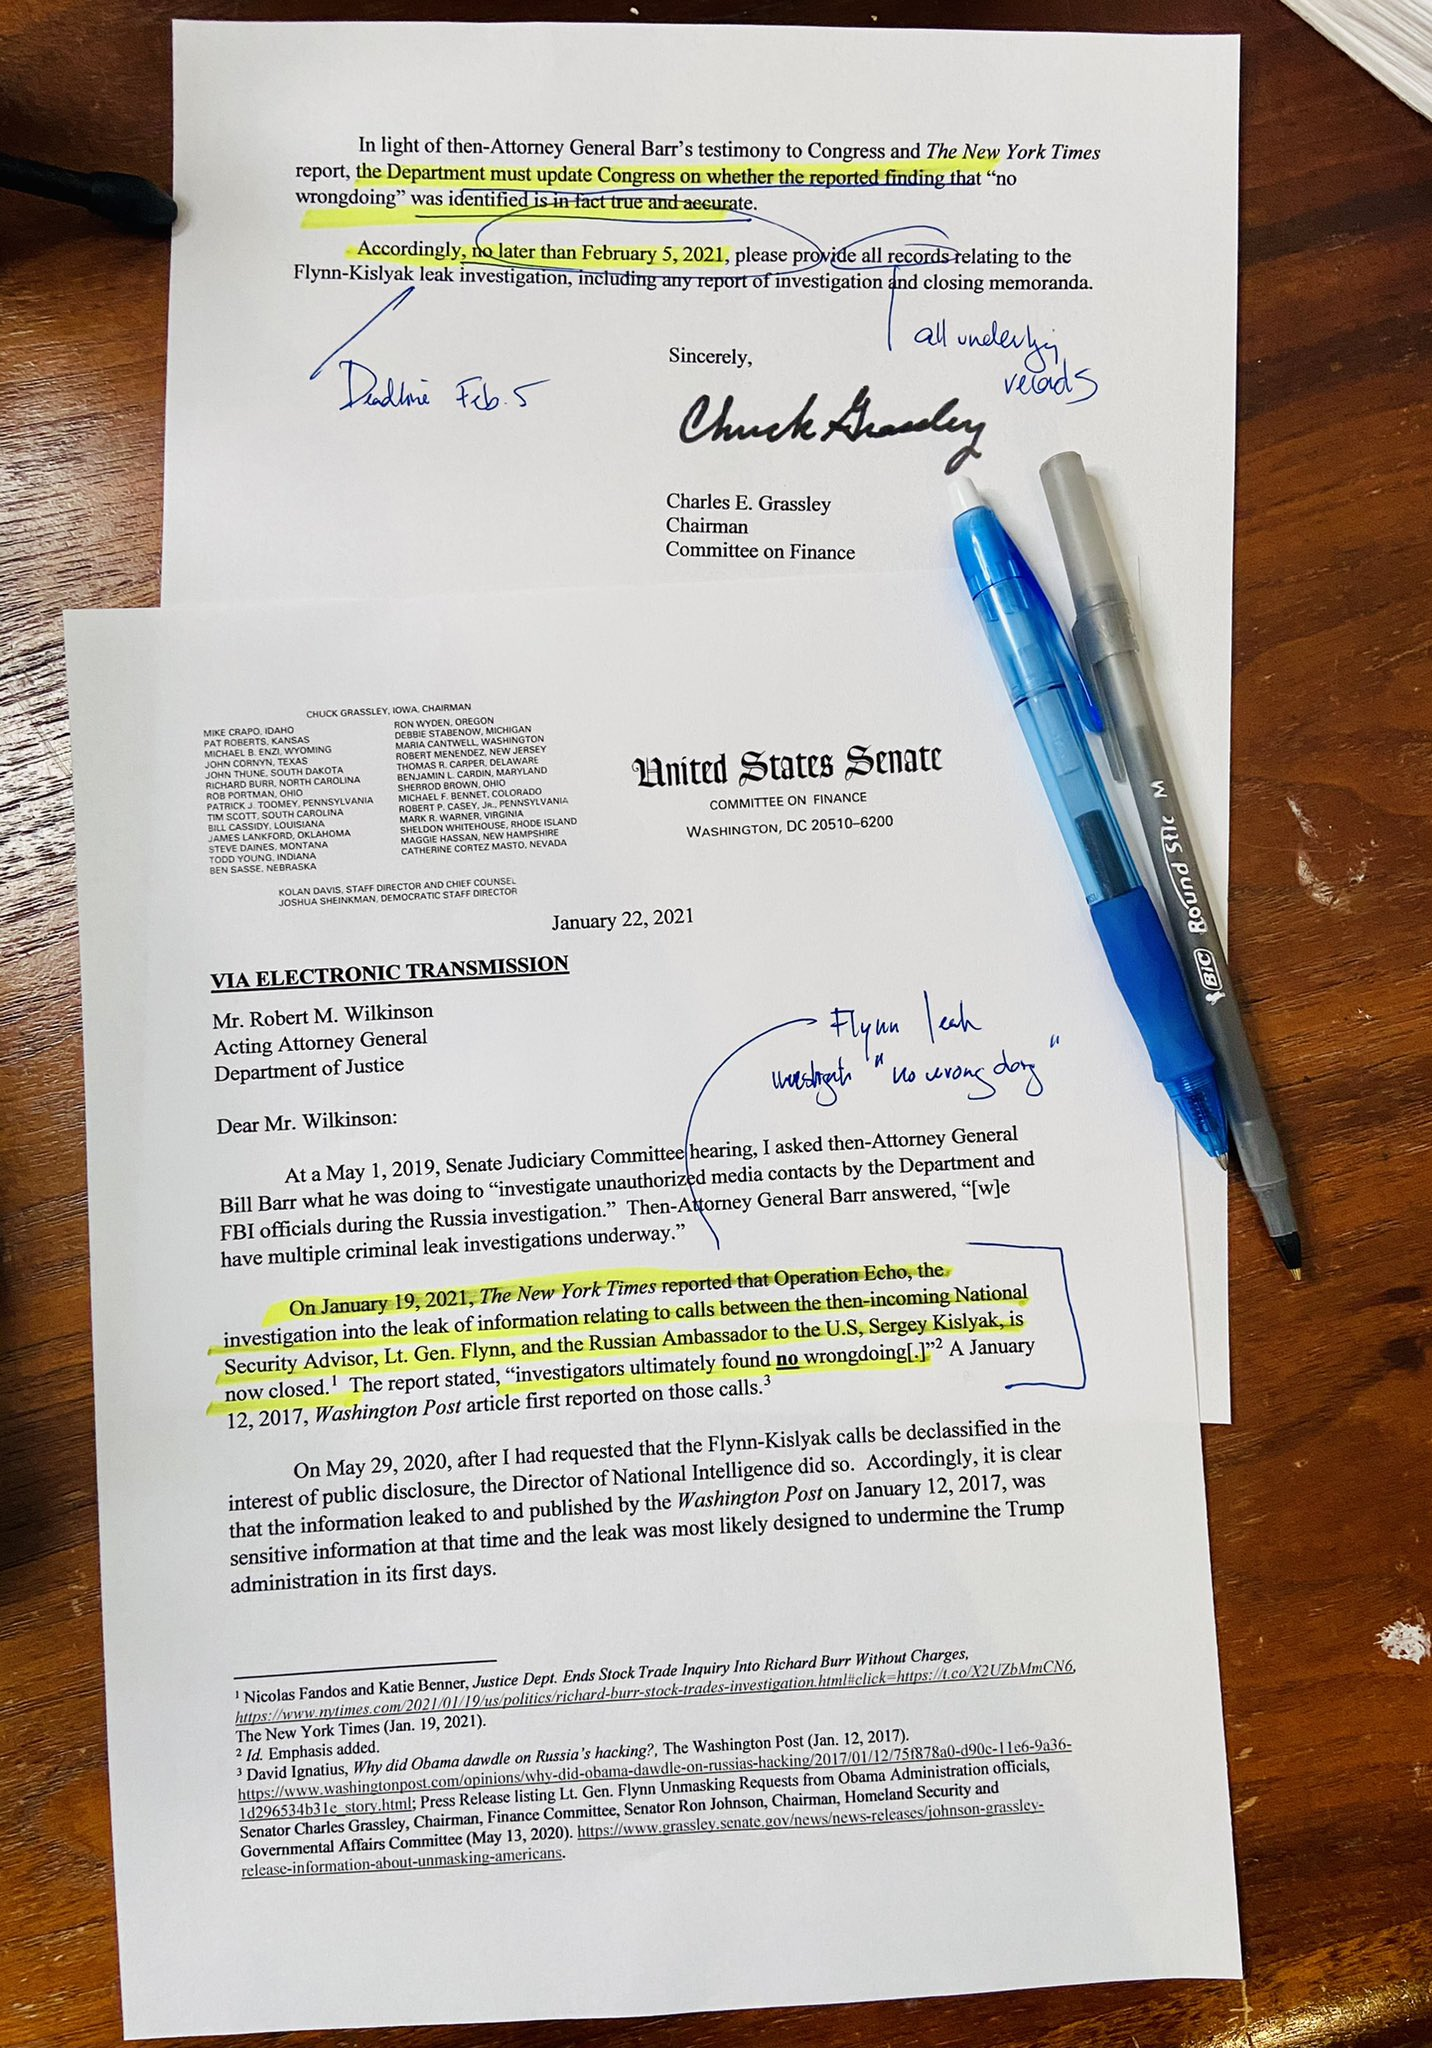 In light of then-Attorney General Barr's testimony to Congress and The New York Times
report, the Department must update Congress on whether the reported finding that “no
wrongdoing” was identified is in fact true and accurate.
Accordingly, no later than February 5, 2021, please provide all records relating to the
Flynn-Kislyak leak investigation, including any report of investigation and closing memoranda.
all underlying
records
Deadline Feb. 5
Sincerely,
Chuck Grassley
Charles E. Grassley
Chairman
Committee on Finance
CHUCK GRASSLEY, IOWA, CHAIRMAN
MIKE CRAPO, IDAHO
PAT ROBERTS, KANSAS
MICHAEL B. ENZI, WYOMING
JOHN CORNYN, TEXAS
JOHN THUNE, SOUTH DAKOTA
RICHARD BURR, NORTH CAROLINA
ROB PORTMAN, OHIO
PATRICK J. TOOMEY, PENNSYLVANIA
TIM SCOTT, SOUTH CAROLINA
BILL CASSIDY, LOUISIANA
JAMES LANKFORD, OKLAHOMA
STEVE DAINES, MONTANA
TODD YOUNG, INDIANA
BEN SASSE, NEBRASKA
RON WYDEN, OREGON
DEBBIE STABENOW, MICHIGAN
MARIA CANTWELL, WASHINGTON
ROBERT MENENDEZ, NEW JERSEY
THOMAS R. CARPER, DELAWARE
BENJAMIN L. CARDIN, MARYLAND
SHERROD BROWN, OHIO
MICHAEL F. BENNET, COLORADO
ROBERT P. CASEY, JR., PENNSYLVANIA
MARK R. WARNER, VIRGINIA
SHELDON WHITEHOUSE, RHODE ISLAND
MAGGIE HASSAN, NEW HAMPSHIRE
CATHERINE CORTEZ MASTO, NEVADA
KOLAN DAVIS, STAFF DIRECTOR AND CHIEF COUNSEL
JOSHUA SHEINKMAN, DEMOCRATIC STAFF DIRECTOR
United States Senate
COMMITTEE ON FINANCE
WASHINGTON, DC 20510–6200
BIC Round Stic M
January 22, 2021
VIA ELECTRONIC TRANSMISSION
Mr. Robert M. Wilkinson
Acting Attorney General
Department of Justice
Flynn leak
"no wrong doing"
Dear Mr. Wilkinson:
At a May 1, 2019, Senate Judiciary Committee hearing, I asked then-Attorney General
Bill Barr what he was doing to “investigate unauthorized media contacts by the Department and
FBI officials during the Russia investigation.” Then-Attorney General Barr answered, “[w]e
have multiple criminal leak investigations underway.”
On January 19, 2021, The New York Times reported that Operation Echo, the
investigation into the leak of information relating to calls between the then-incoming National
Security Advisor, Lt. Gen. Flynn, and the Russian Ambassador to the U.S, Sergey Kislyak, is
now closed.1 The report stated, “investigators ultimately found no wrongdoing[.]”2 A January
12, 2017, Washington Post article first reported on those calls.3
On May 29, 2020, after I had requested that the Flynn-Kislyak calls be declassified in the
interest of public disclosure, the Director of National Intelligence did so. Accordingly, it is clear
that the information leaked to and published by the Washington Post on January 12, 2017, was
sensitive information at that time and the leak was most likely designed to undermine the Trump
administration in its first days.
1 Nicolas Fandos and Katie Benner, Justice Dept. Ends Stock Trade Inquiry Into Richard Burr Without Charges,
https://www.nytimes.com/2021/01/19/us/politics/richard-burr-stock-trades-investigation.html#click=https://t.co/X2UZbMmCN6,
The New York Times (Jan. 19, 2021).
2 Id. Emphasis added.
3 David Ignatius, Why did Obama dawdle on Russia's hacking?, The Washington Post (Jan. 12, 2017).
https://www.washingtonpost.com/opinions/why-did-obama-dawdle-on-russias-hacking/2017/01/12/75f878a0-d90c-11e6-9a36-
1d296534b31e_story.html; Press Release listing Lt. Gen. Flynn Unmasking Requests from Obama Administration officials,
Senator Charles Grassley, Chairman, Finance Committee, Senator Ron Johnson, Chairman, Homeland Security and
Governmental Affairs Committee (May 13, 2020). https://www.grassley.senate.gov/news/news-releases/johnson-grassley-
release-information-about-unmasking-americans.